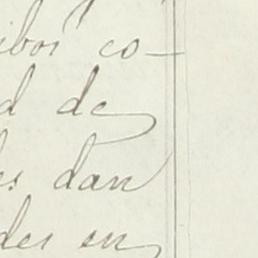 ibos co
d de
es dan
des en